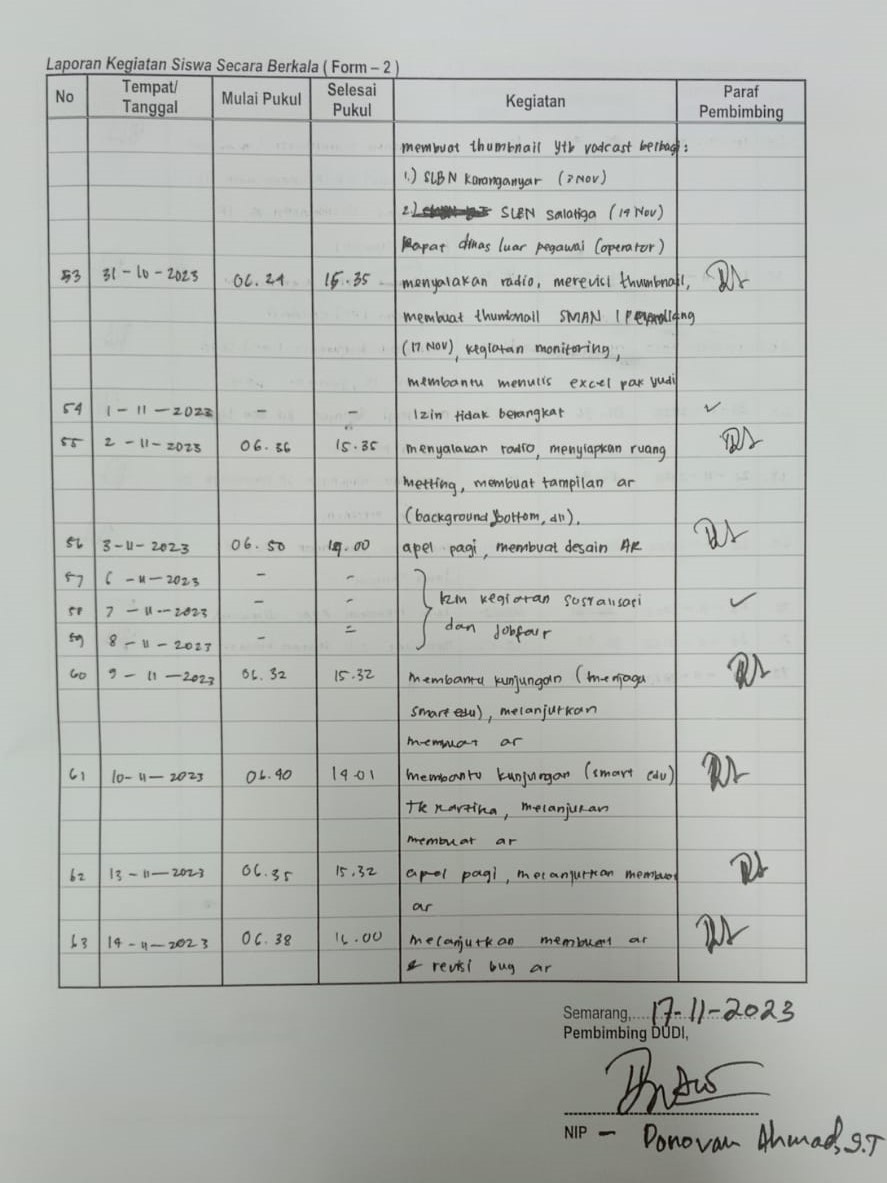 Laporan Kegiatan Siswa Secara Berkala ( Form – 2 )
No Tempat/ Tanggal Mulai Pukul Selesai Pukul Kegiatan Paraf Pembimbing
membuat thumbnail ytb vodcast berbagi :
1.) SLBN Karanganyar (7 Nov)
2.) SLBN Salatiga (14 Nov)
Rapat dinas luar pegawai (operator)
53 31 - 10 - 2023 06.24 15.35 menyalakan radio, merevisi thumbnail,
membuat thumbnail SMAN 1
(17 Nov), kegiatan monitoring,
membantu menulis excel pak yudi
54 1 - 11 - 2023 - - Izin tidak berangkat ✓
55 2 - 11 - 2023 06.36 15.35 menyalakan radio, menyiapkan ruang
metting, membuat tampilan ar
(background, bottom, dll).
56 3 - 11 - 2023 06.50 14.00 apel pagi, membuat desain AR
57 6 - 11 - 2023 - -
58 7 - 11 - 2023 - - Izin kegiatan sosialisasi ✓
dan Jobfair
59 8 - 11 - 2023 - =
60 9 - 11 - 2023 06.32 15.32 membantu kunjungan (menjaga
smart edu), melanjutkan
membuat ar
61 10 - 11 - 2023 06.40 14.01 membantu kunjungan (smart edu)
TK Kartika, melanjukan
membuat ar
62 13 - 11 - 2023 06.35 15.32 apel pagi, melanjutkan membuat
ar
63 14 - 11 - 2023 06.38 16.00 melanjutkan membuat ar
& revisi bug ar
Semarang, 17-11-2023
Pembimbing DUDI,
NIP - Donovan Ahmad, S.T